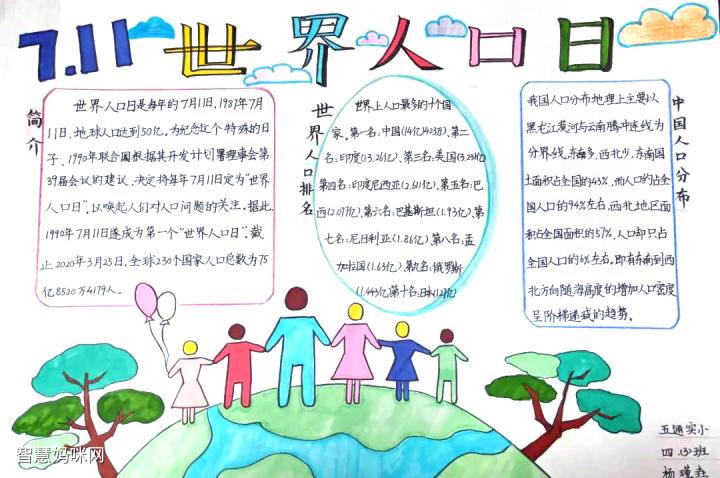 7.11世界人口日
简介
世界人口日是每年的7月11日,1987年7月
11日,地球人口达到50亿。为纪念这个特殊的日
子,1990年联合国根据其开发计划署理事会第
39届会议的建议,决定将每年7月11日定为“世界
人口日”,以唤起人们对人口问题的关注。据此,
1990年7月11日遂成为第一个“世界人口日”。截
止2020年3月25日,全球230个国家人口总数为75
亿8520万4179人。
世界人口排名
世界上人口最多的十个国
家。第一名:中国(14亿423万)、第二
名:印度(13.26亿)、第三名:美国(3.23亿)
第四名:印度尼西亚(2.61亿)、第五名:巴
西(2.07亿)、第六名:巴基斯坦(1.93亿)、第
七名:尼日利亚(1.86亿)、第八名:孟
加拉国(1.63亿)、第九名:俄罗斯
(1.443亿)第十名:日本(1.27亿)
中国人口分布
我国人口分布地理上主要以
黑龙江黄河与云南腾冲连线为
分界线,东南多,西北少,东南国
土面积占全国的43%,而人口约占全
国人口的94%左右,西北地区面
积占全国面积的57%,人口却只占
全国人口的6%左右。即有东南到西
北方向随海高度的增加人口密度
呈阶梯递减的趋势。
五通实小
四(3)班
杨瑾垚
智慧妈咪网